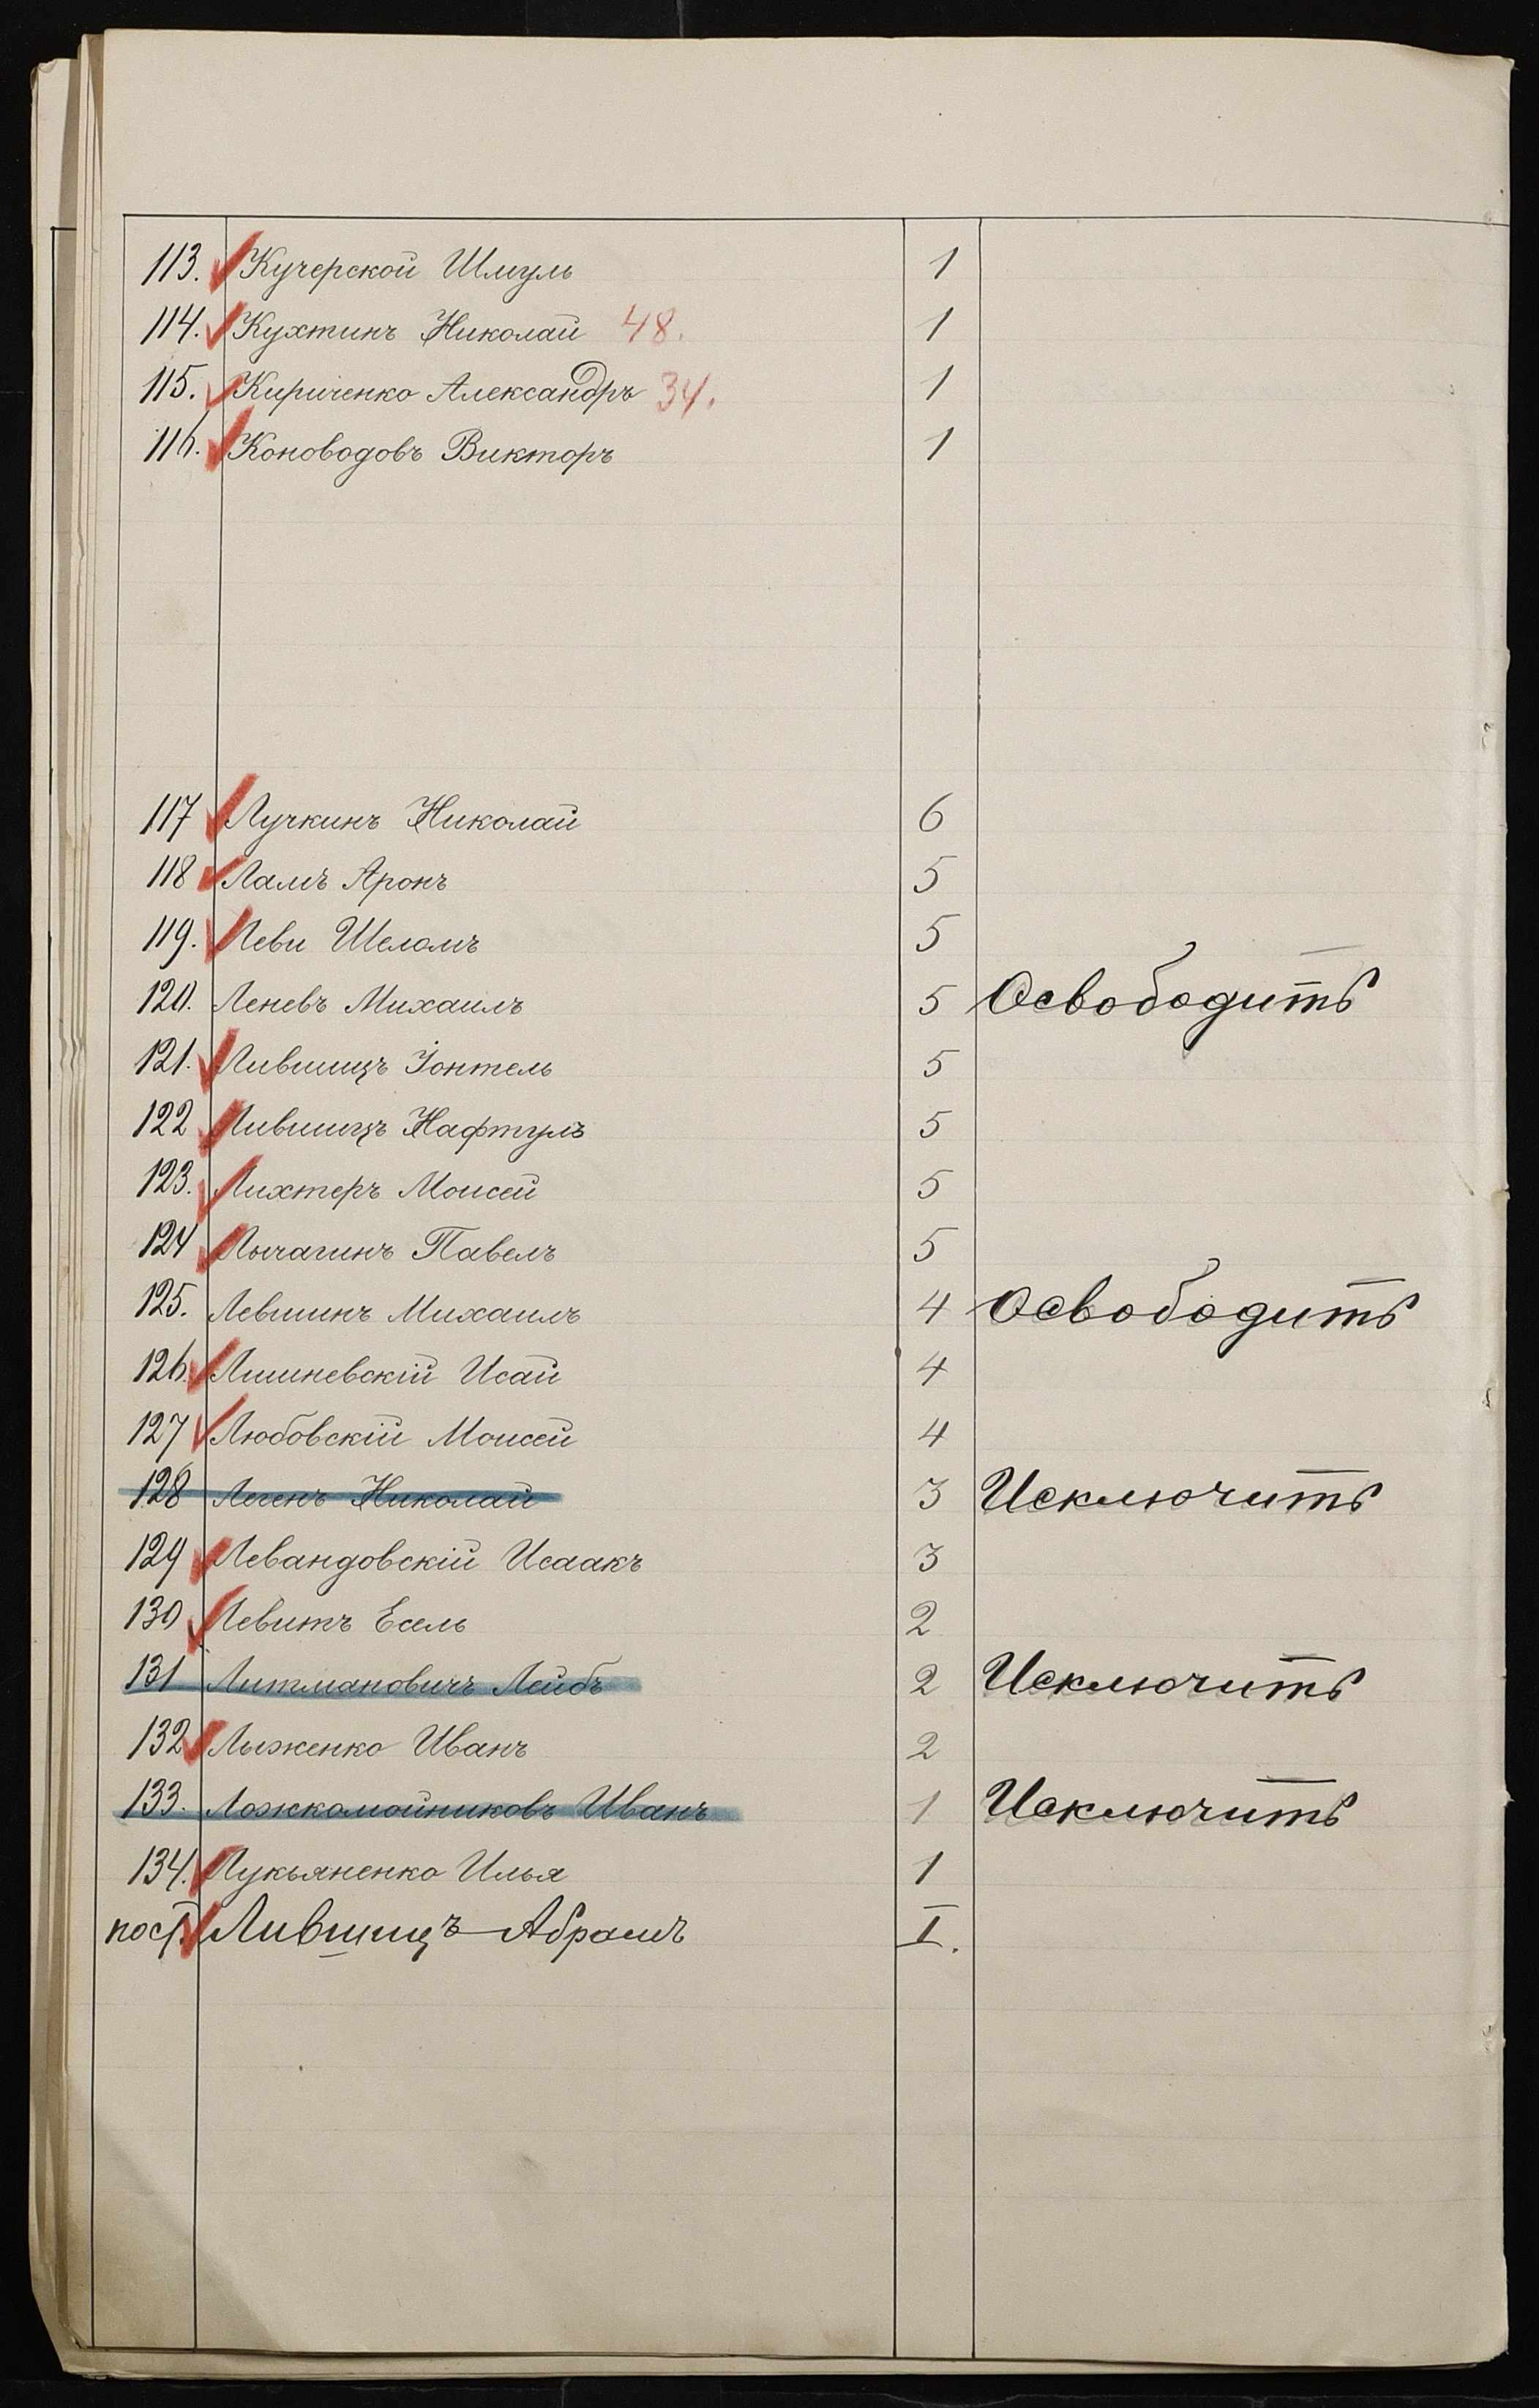 113. Кучерской Шмуль 1
114. Кухтинъ Николай 48. 1
115. Кириченко Александръ 34. 1
116. Коноводовъ Викторъ 1
117 Лучкинъ Николай 6
118 Ламъ Аронъ 5
119. Леви Шеломъ 5
120. Леневъ Михаилъ 5 Освободить
121. Лившицъ Іонтель 5
122 Лившицъ Нафтулъ 5
123. Лихтеръ Моисей 5
124 Лычагинъ Павелъ 5
125. Левшинъ Михаилъ 4 Освободить
126. Лишневскій Исай 4
127 Любовскій Моисей 4
128 Легенъ Николай 3 Исключить
129 Левандовскій Исаакъ 3
130 Левитъ Есель 2
131 Литмановичъ Лейбъ 2 Исключить
132 Лыженко Иванъ 2
133. Ложкомойниковъ Иванъ 1 Исключить
134. Лукьяненко Илья 1
пост. Лившицъ Абрамъ I.